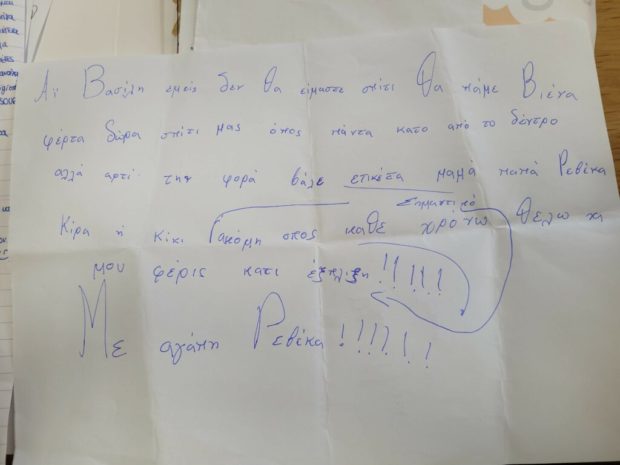 Αϊ Βασίλη εμείς δεν θα είμαστε σπίτι Θα πάμε Βιένα
φέρτα δώρα σπίτι μας όπος πάντα κατο από το δέντρο
αλλά αρτί την φορά βάλε ετικέτα μαμά παπά Ρεβέκα
Σημαντικό
Κίρα ή Κίκι (ακόμη οπος κάθε χρόνω θέλω να
μου φέρις κατι έξπλιξη!!!!!!
Με αγάπη Ρεβέκα!!!!!!!